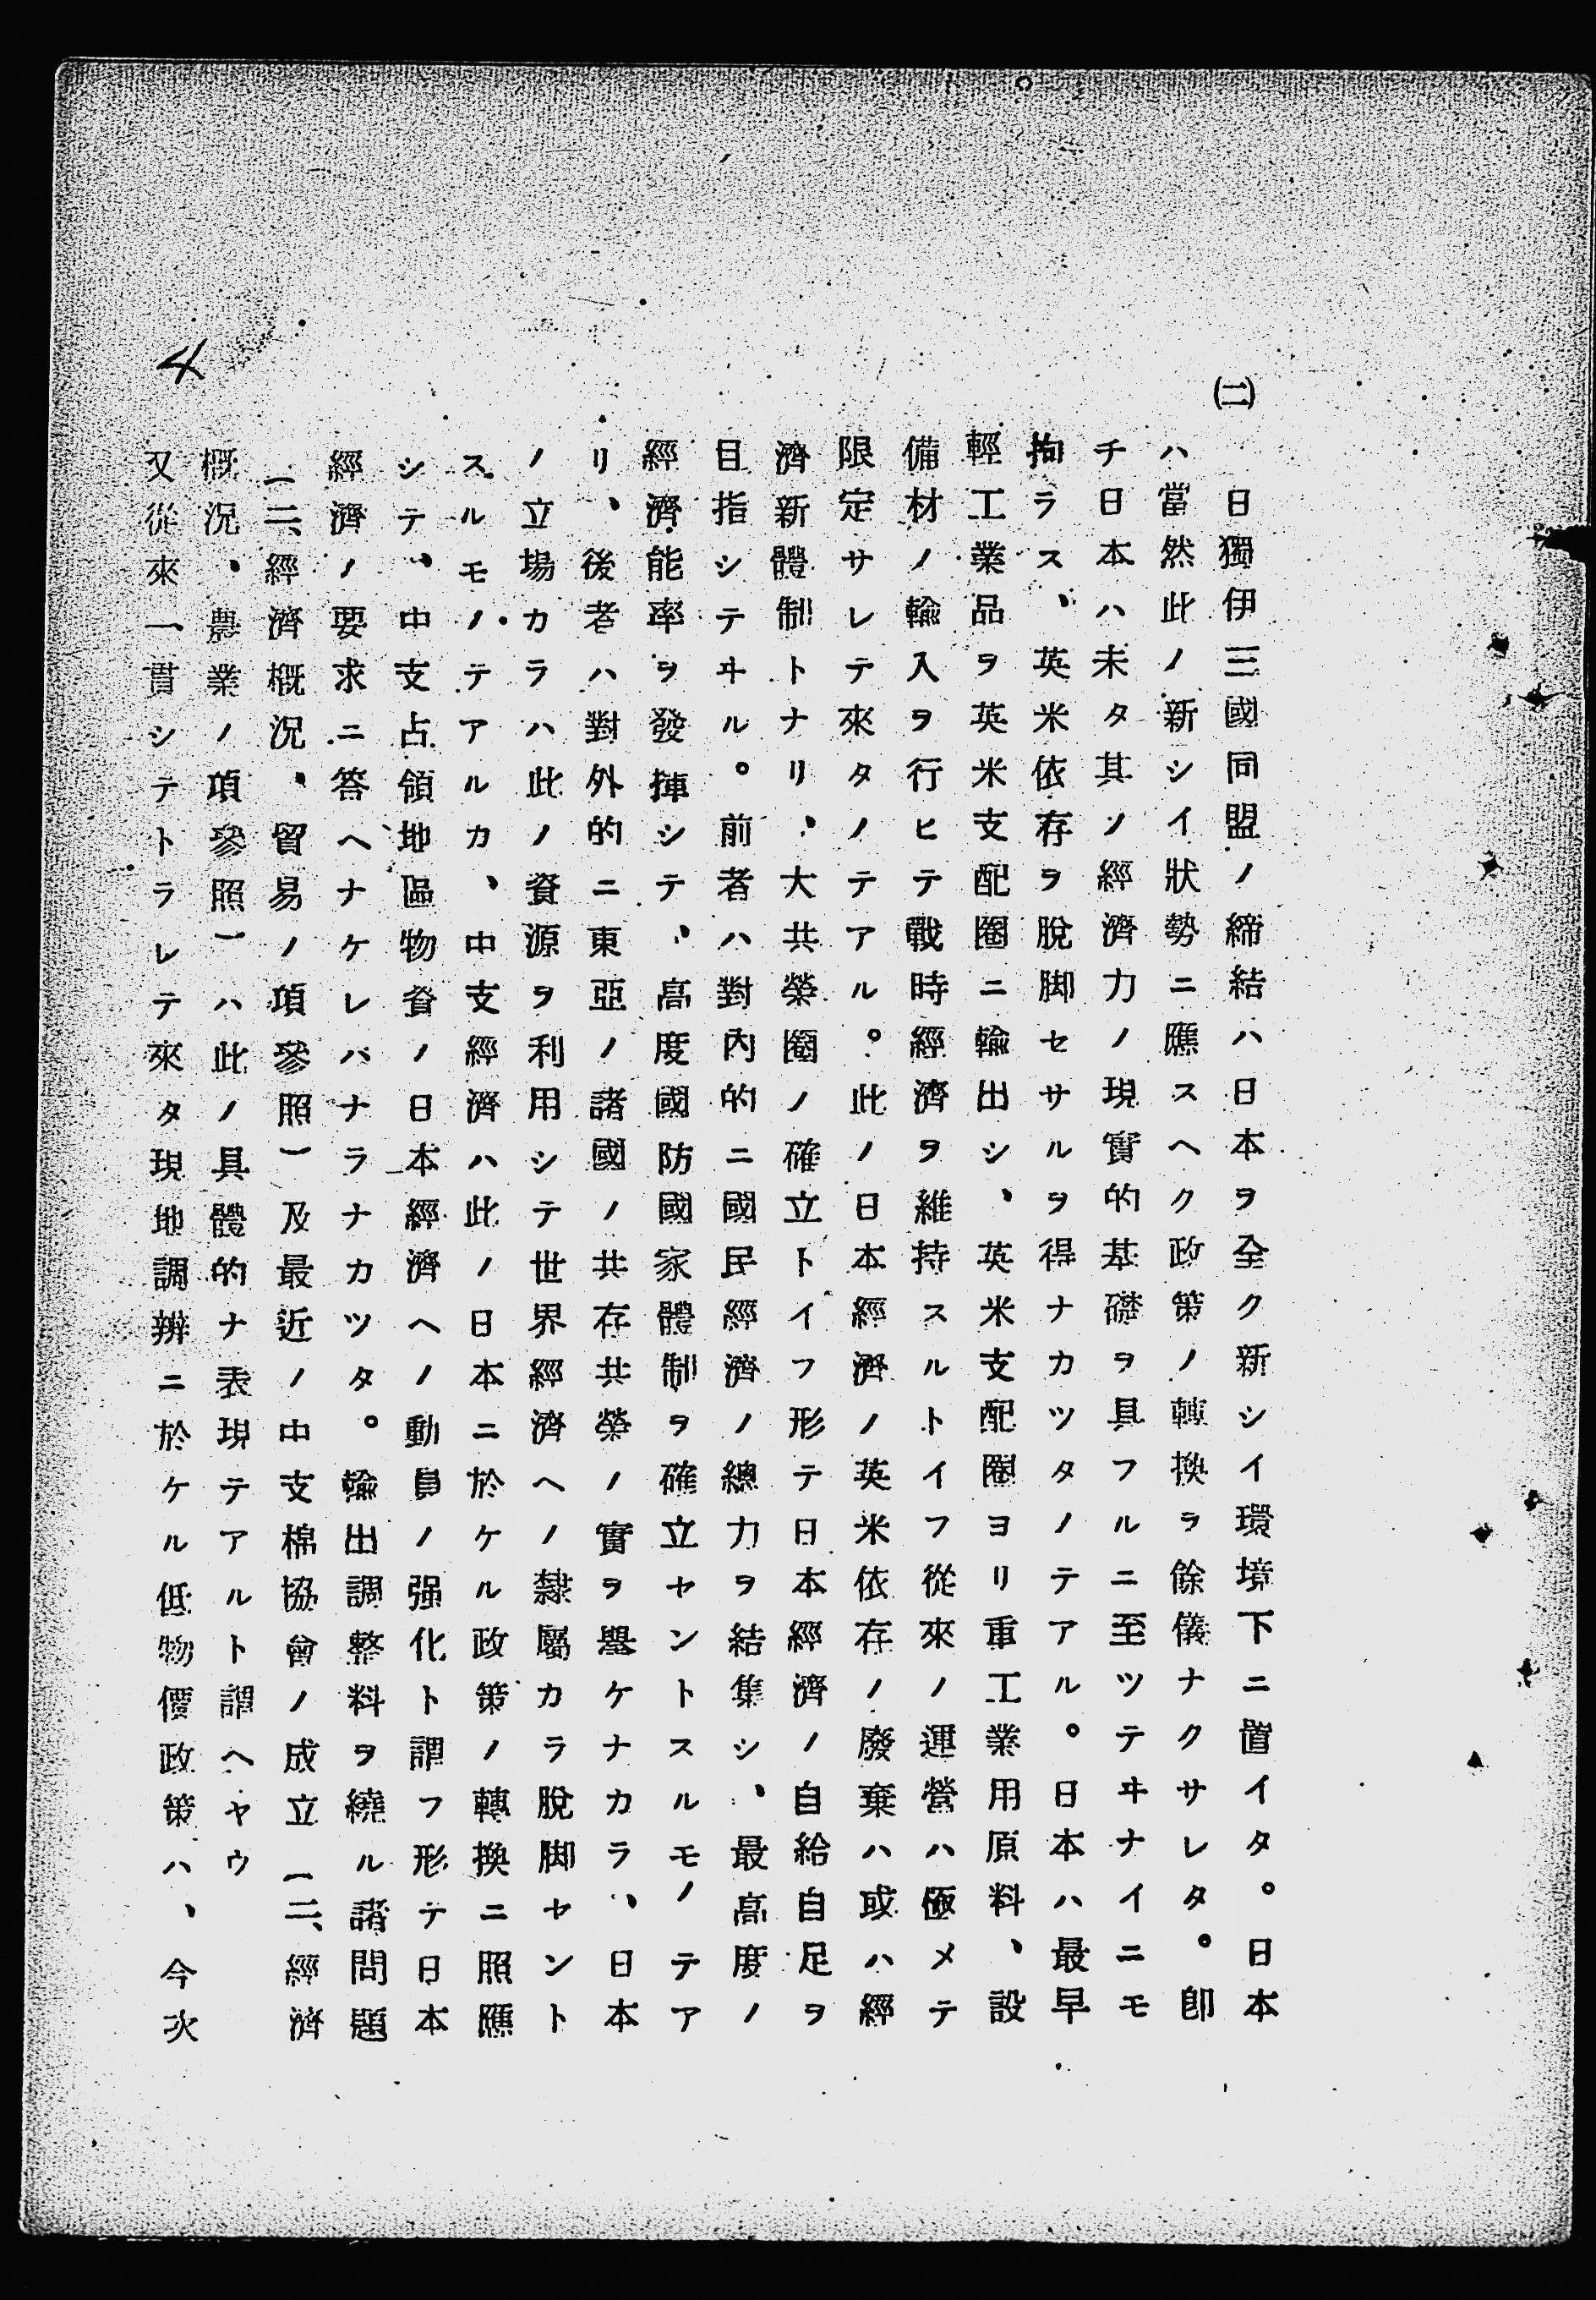 ㈡
日獨伊三國同盟ノ締結ハ日本ヲ全ク新シイ環境下ニ置イタ。日本
ハ當然此ノ新シイ狀勢ニ應スヘク政策ノ轉換ヲ餘儀ナクサレタ。卽
チ日本ハ未タ其ノ經濟力ノ現實的基礎ヲ具フルニ至ツテヰナイニモ
拘ラス、英米依存ヲ脫脚セサルヲ得ナカツタノテアル。日本ハ最早
輕工業品ヲ英米支配圈ニ輸出シ、英米支配圈ヨリ重工業用原料、設
備材ノ輸入ヲ行ヒテ戰時經濟ヲ維持スルトイフ從來ノ運營ハ極メテ
限定サレテ來タノテアル。此ノ日本經濟ノ英米依存ノ廢棄ハ或ハ經
濟新體制トナリ、大共榮圈ノ確立トイフ形テ日本經濟ノ自給自足ヲ
目指シテヰル。前者ハ對內的ニ國民經濟ノ總力ヲ結集シ、最高度ノ
經濟能率ヲ發揮シテ、高度國防國家體制ヲ確立セントスルモノテア
リ、後者ハ對外的ニ東亞ノ諸國ノ共存共榮ノ實ヲ擧ケナカラ、日本
ノ立場カラハ此ノ資源ヲ利用シテ世界經濟ヘノ隸屬カラ脫脚セント
スルモノテアルカ、中支經濟ハ此ノ日本ニ於ケル政策ノ轉換ニ照應
シテ、中支占領地區物資ノ日本經濟ヘノ動員ノ强化ト謂フ形テ日本
經濟ノ要求ニ答ヘナケレバナラナカツタ。輸出調整料ヲ繞ル諸問題
(二、經濟概況、貿易ノ項參照)及最近ノ中支棉協會ノ成立(二、經濟
概況、農業ノ項參照)ハ此ノ具體的ナ表現テアルト謂ヘヤウ
又從來一貫シテトラレテ來タ現地調辨ニ於ケル低物價政策ハ、今次
4